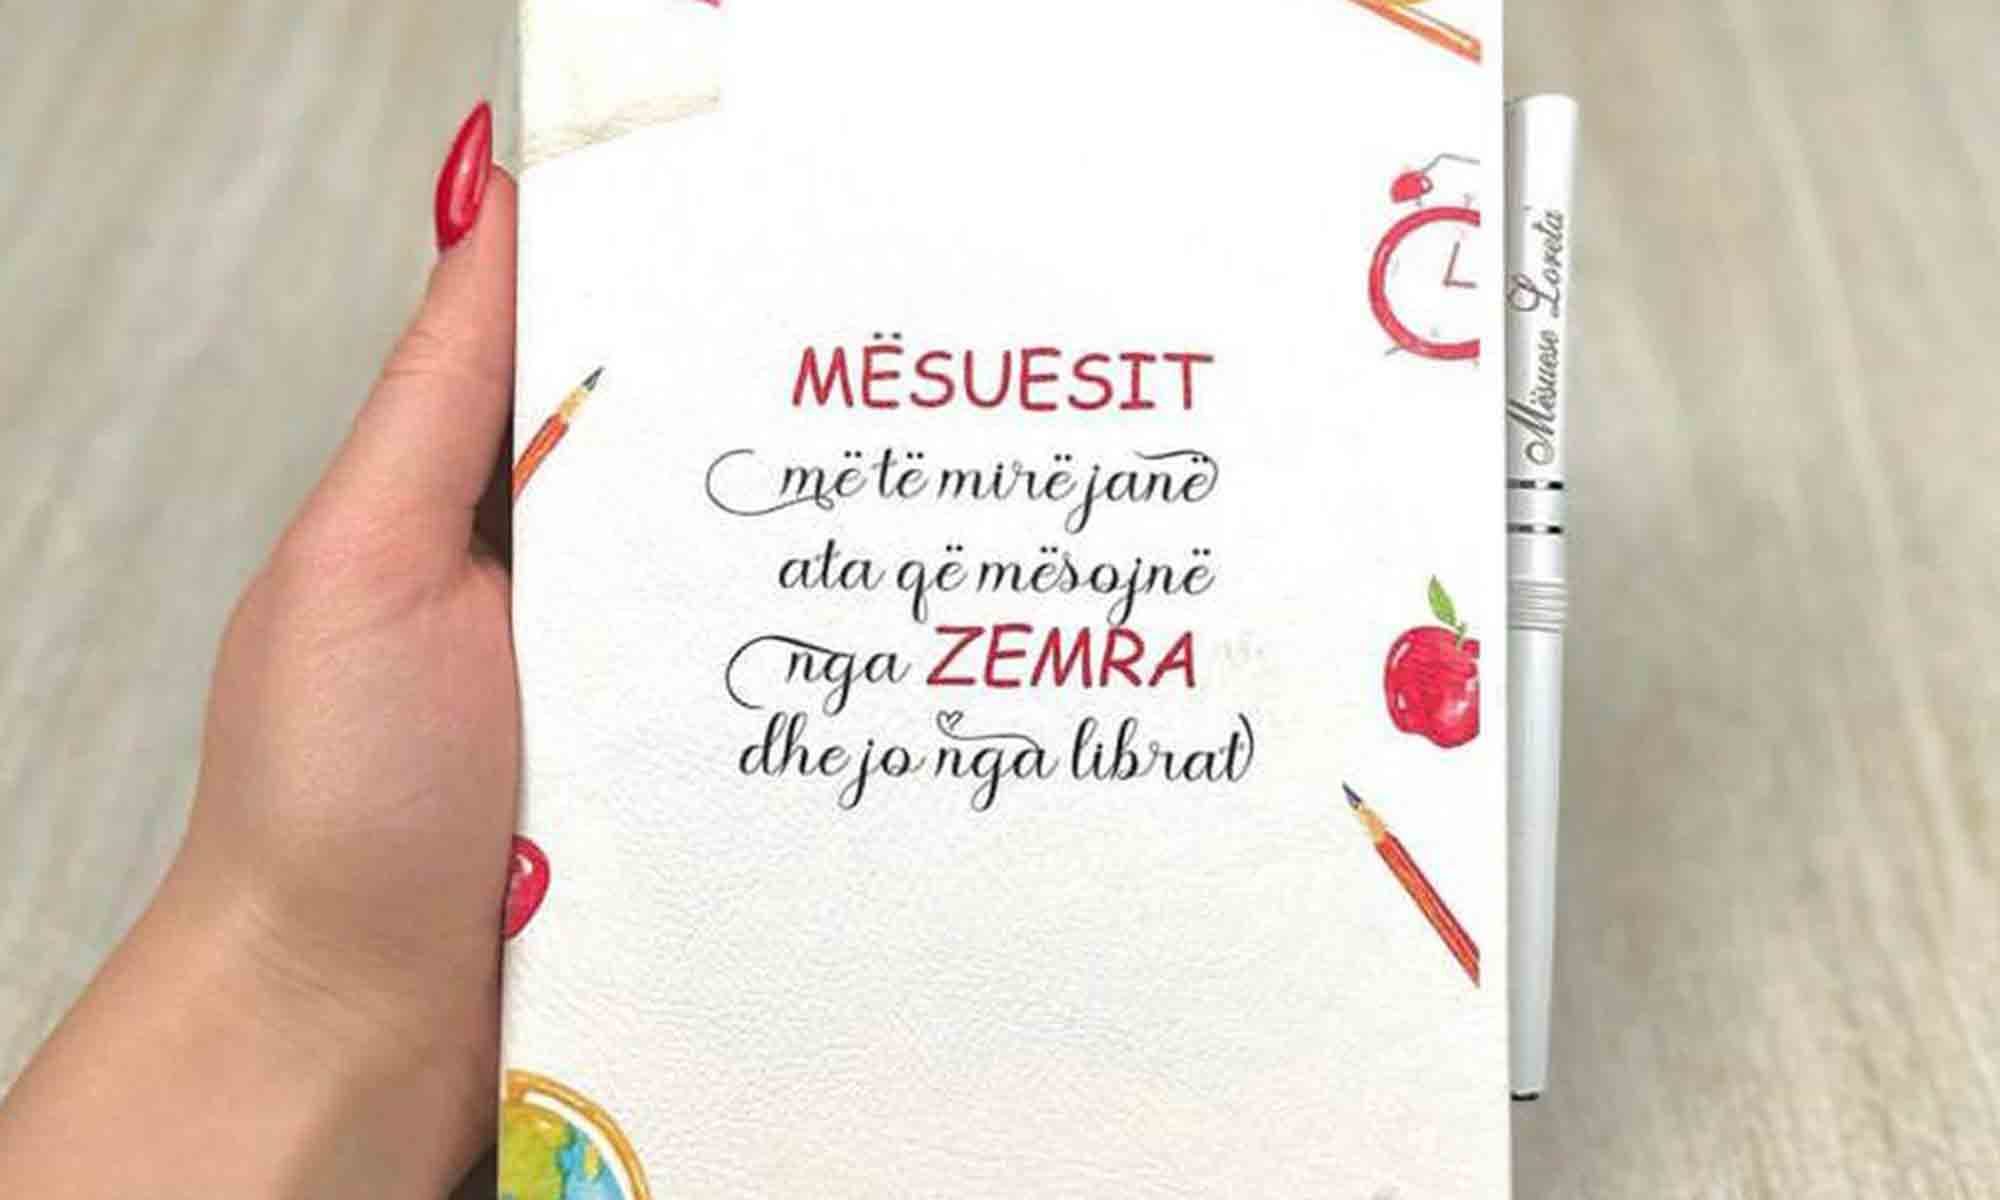 MËSUESIT
më të mirë janë
ata që mësojnë
nga ZEMRA
dhe jo nga librat
Mësuese Loreta